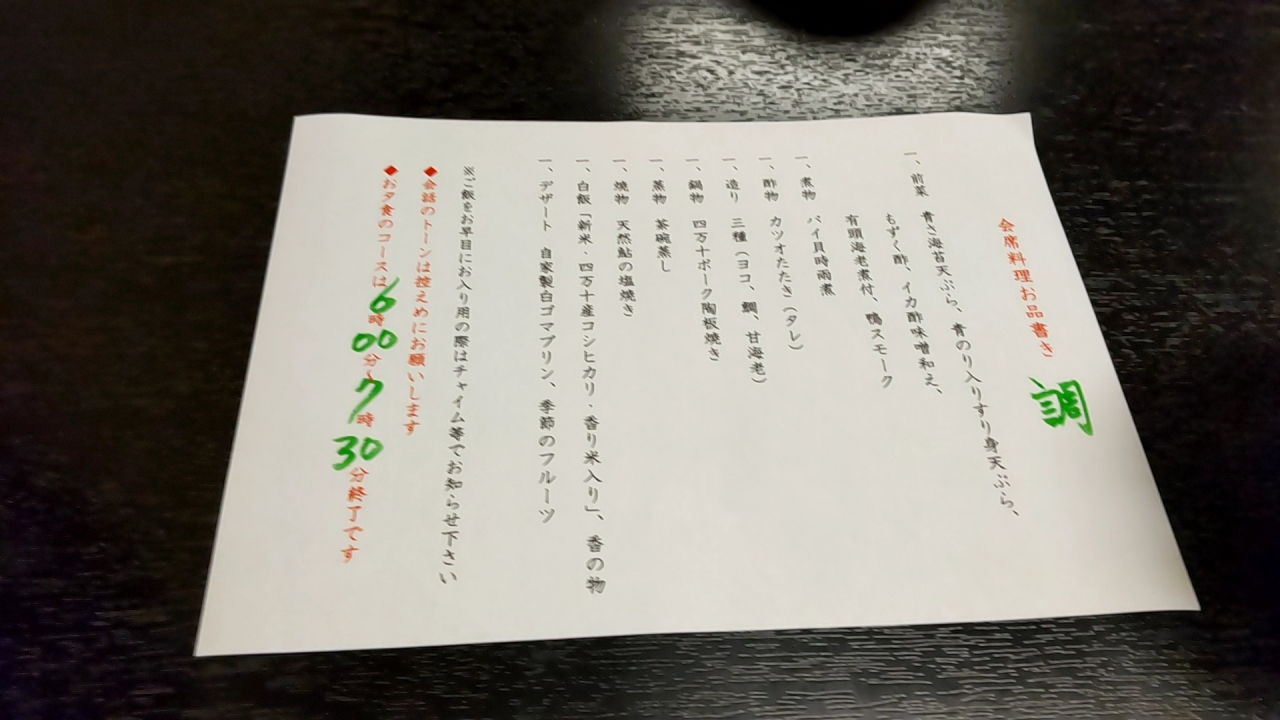 会席料理お品書き
調
一、前菜 青さ海苔天ぷら、青のり入りすり身天ぷら、
もずく酢、イカ酢味噌和え、
有頭海老煮付、鴨スモーク
一、煮物 バイ貝時雨煮
一、酢物 カツオたたき（タレ）
一、造り 三種（ヨコ、鯛、甘海老）
一、鍋物 四万十ポーク陶板焼き
一、蒸物 茶碗蒸し
一、焼物 天然鮎の塩焼き
一、白飯「新米・四万十産コシヒカリ・香り米入り」、香の物
一、デザート 自家製白ゴマプリン、季節のフルーツ
※ご飯をお早目にお入り用の際はチャイム等でお知らせ下さい
◆会話のトーンは控えめにお願いします
◆お夕食のコースは6時00分～7時30分終了です